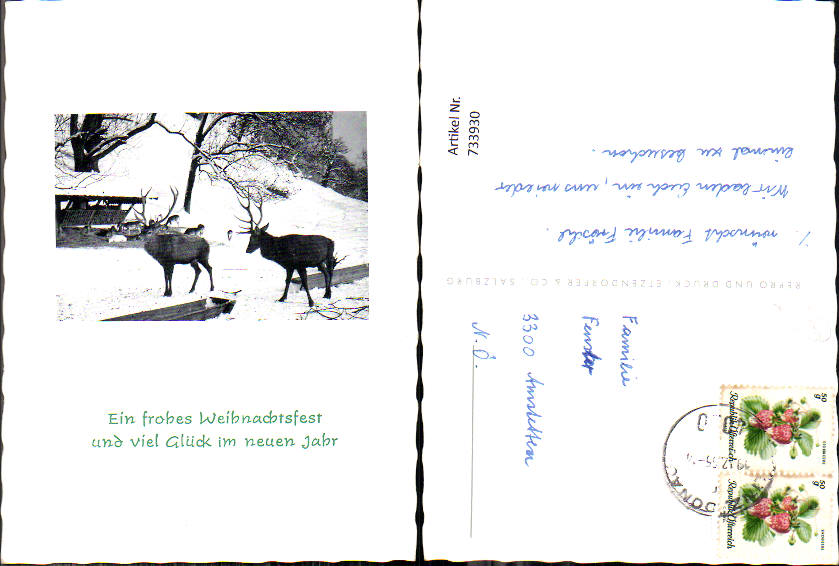 Ein frohes Weihnachtsfest
und viel Glück im neuen Jahr
Artikel Nr.
733930
wünscht Familie Fröschl.
Wir laden Euch ein, uns wieder
einmal zu besuchen.
REPRO UND DRUCK: ETZENDORFER & CO., SALZBURG
Familie
Fenster
3300 Amstetten
N.Ö.
50
g
Republik Österreich
50
g
Republik Österreich